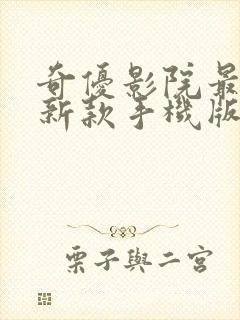 奇優影院最
新款手機版
栗子與二宮